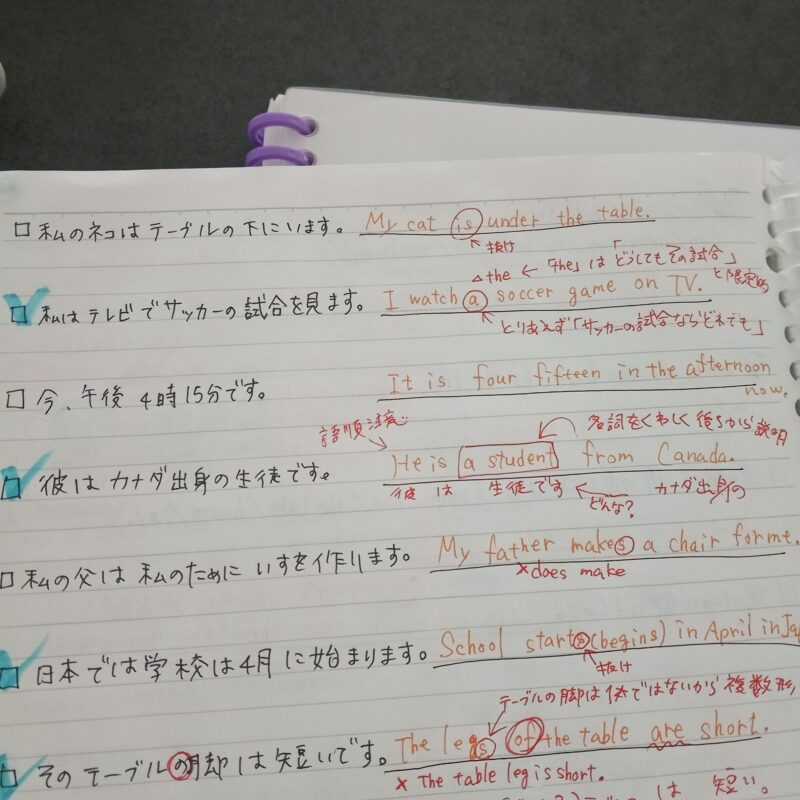 □ 私のネコはテーブルの下にいます。 My cat is under the table.
抜け
△the ← 「the」は「どうしてもその試合」
と限定的
□ 私はテレビでサッカーの試合を見ます。 I watch a soccer game on TV.
とりあえず「サッカーの試合ならどれでも」
□ 今、午後4時15分です。 It is four fifteen in the afternoon
now.
語順注意 名詞をくわしく後ろから説明
□ 彼はカナダ出身の生徒です。 He is a student from Canada.
彼 は 生徒です どんな? カナダ出身の
□ 私の父は私のためにいすを作ります。 My father makes a chair for me.
×does make
□ 日本では学校は4月に始まります。 School starts (begins) in April in Ja
抜け
テーブルの脚は1本ではないから複数形
□ そのテーブルの脚は短いです。 The legs of the table are short.
× The table leg is short.
は 短い。